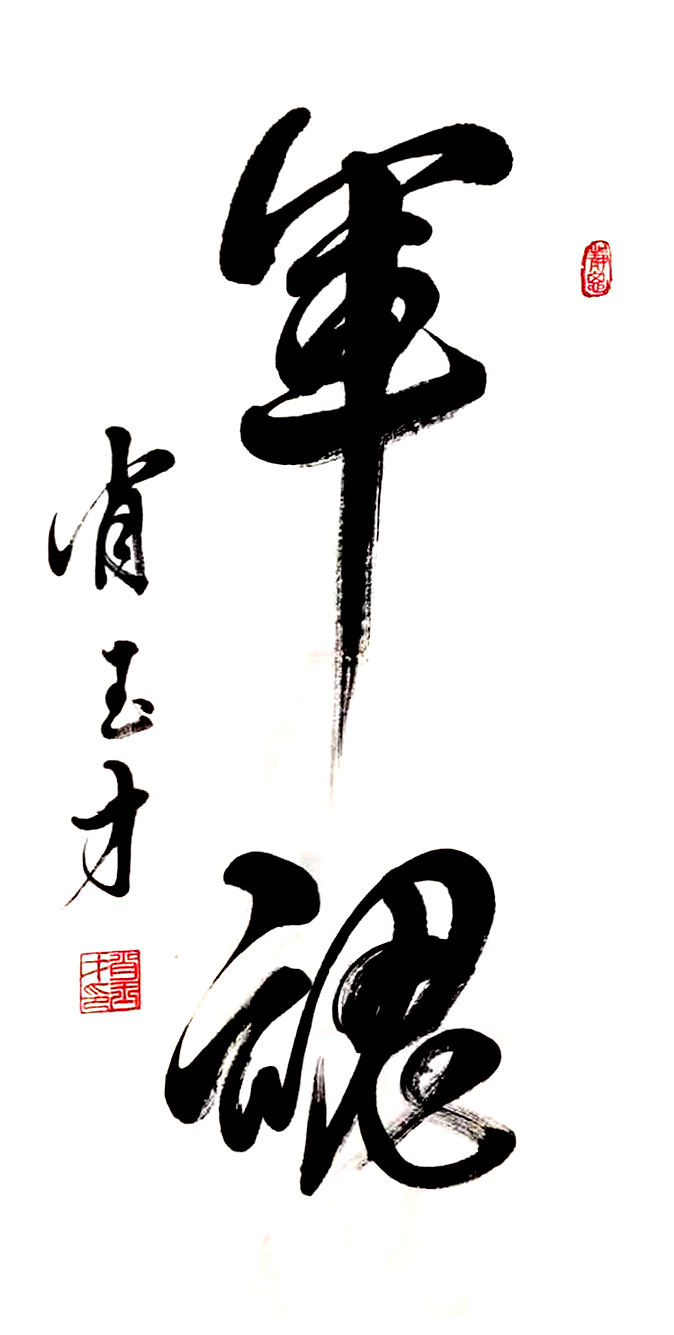 軍魂
肖玉才